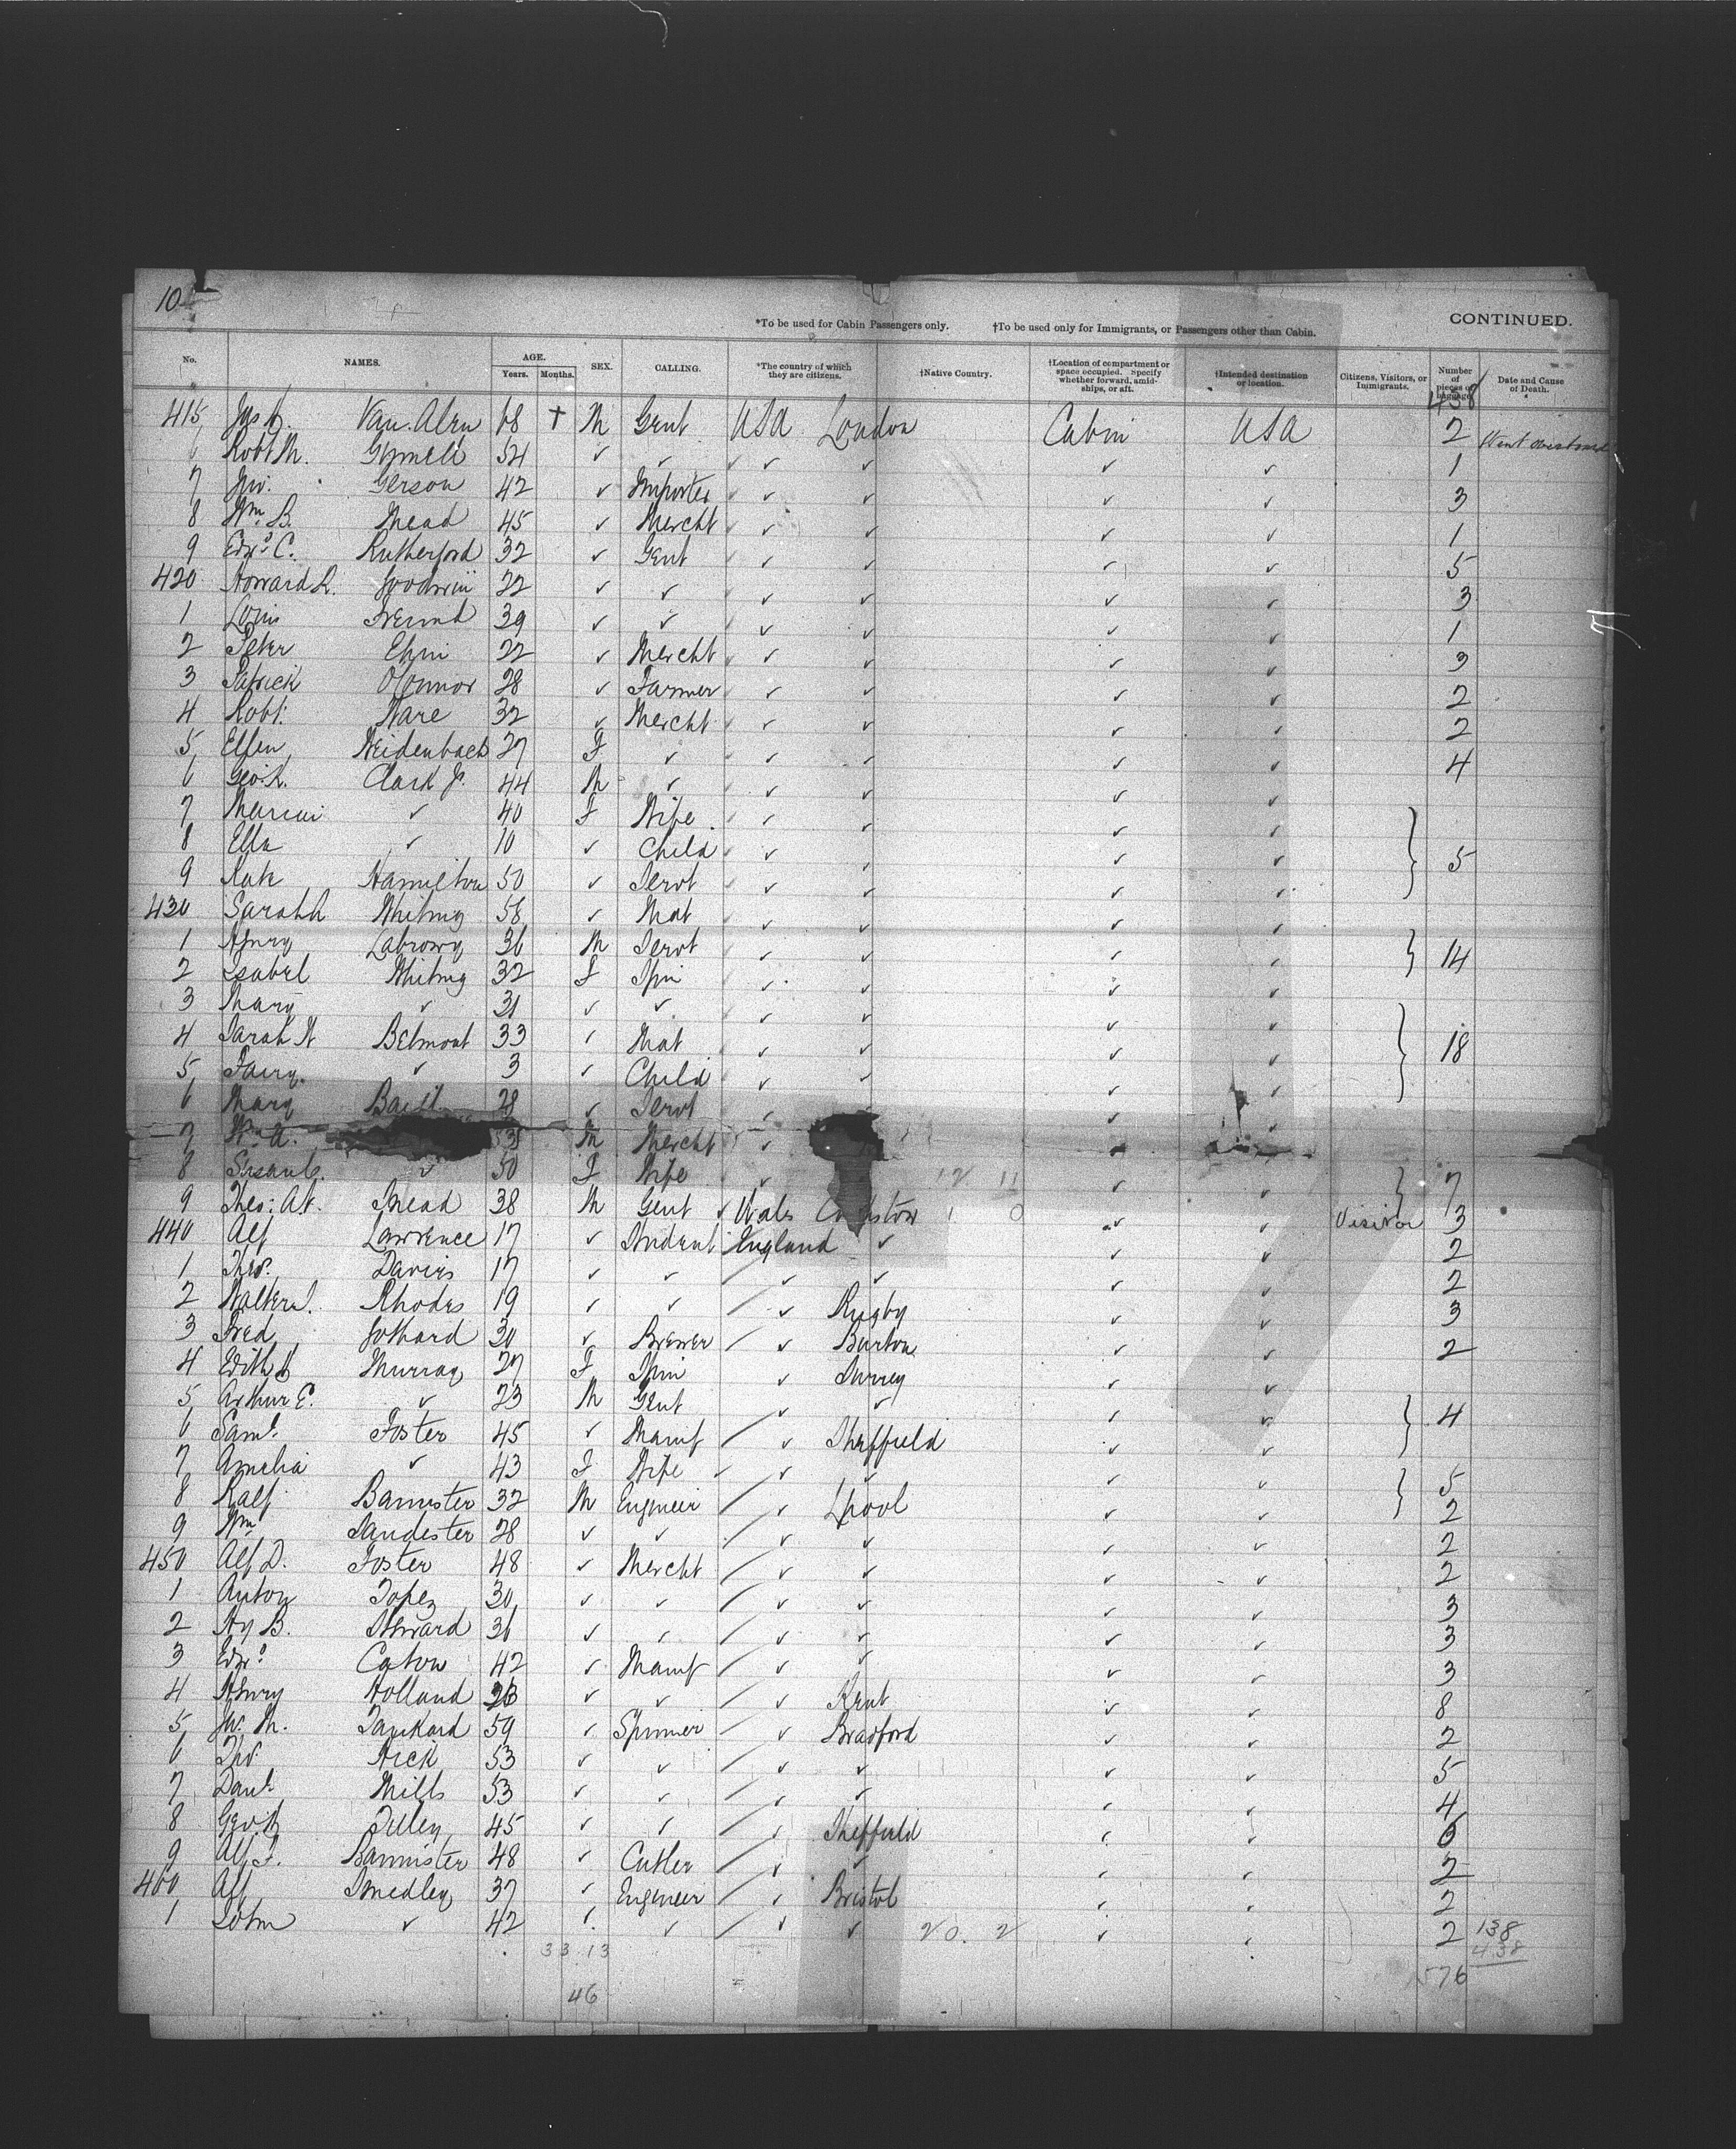 10
*To be used for Cabin Passengers only. †To be used only for Immigrants, or Passengers other than Cabin. CONTINUED.
No. NAMES. AGE. Years. Months. SEX. CALLING. *The country of which they are citizens. †Native Country. †Location of compartment or space occupied. Specify whether forward, amidships, or aft. †Intended destination or location. Citizens, Visitors, or Immigrants. Number of pieces of luggage. Date and Cause of Death.
438
415 Jas H. Van. Alen 68 † M Gent USA London Cabin USA 2 Went overboard
6 Robt M. 54 ✓ ✓ ✓ ✓ ✓ ✓ 1
7 Jno. Gerson 42 ✓ Importer ✓ ✓ ✓ ✓ 3
8 Wm B. Mead 45 ✓ Mercht ✓ ✓ ✓ ✓ 1
9 Edwd C. Rutherford 32 ✓ Gent ✓ ✓ ✓ ✓ 5
420 Howard R. Goodwin 22 ✓ ✓ ✓ ✓ ✓ ✓ 3
1 Louis Freund 39 ✓ ✓ ✓ ✓ ✓ ✓ 1
2 Peter Ehni 22 ✓ Mercht ✓ ✓ ✓ ✓ 3
3 Patrick O'Connor 28 ✓ Farmer ✓ ✓ ✓ ✓ 2
4 Robt. Ware 32 ✓ Mercht ✓ ✓ ✓ ✓ 2
5 Ellen Weidenbach 27 F ✓ ✓ ✓ ✓ ✓ 4
6 Geo. R. Clark Jr. 44 M ✓ ✓ ✓ ✓ ✓
7 ✓ 40 F Wife ✓ ✓ ✓ ✓
8 Ella ✓ 10 ✓ Child ✓ ✓ ✓ ✓ 5
9 Kate Hamilton 50 ✓ Servt ✓ ✓ ✓ ✓
430 Sarah Whiting 58 ✓ Mat ✓ ✓ ✓ ✓
1 Henry 36 M Servt ✓ ✓ ✓ ✓ 14
2 Isabel Whiting 32 F Spin ✓ ✓ ✓ ✓
3 Mary ✓ 31 ✓ ✓ ✓ ✓ ✓ ✓
4 Sarah W Belmont 33 ✓ Mat ✓ ✓ ✓ ✓ 18
5 ✓ 3 ✓ Child ✓ ✓ ✓ ✓
6 Mary 28 ✓ Servt ✓ ✓ ✓
7 Wm A. M Mercht ✓ ✓ ✓
8 ✓ 50 F Wife ✓ ✓ ✓ 7
12 11
9 Theo: A. Mead 38 M Gent Wales ✓ ✓ Visitor 3
1 0
440 Alf Lawrence 17 ✓ Student England ✓ ✓ ✓ 2
1 Theo. Davies 17 ✓ ✓ ✓ ✓ ✓ ✓ 2
2 Walter J. Rhodes 19 ✓ ✓ ✓ Rugby ✓ ✓ 3
3 Fred Gothard 30 ✓ Brewer ✓ Burton ✓ ✓ 2
4 Edith Murray 27 F Spin ✓ Surrey ✓ ✓
5 Arthur E. ✓ 23 M Gent ✓ ✓ ✓ ✓ 4
6 Saml. Foster 45 ✓ Manuf ✓ Sheffield ✓ ✓
7 Amelia ✓ 43 F Wife ✓ ✓ ✓ ✓ 5
8 Ralf Bannister 32 M Engineer ✓ L'pool ✓ ✓ 2
9 Wm Sandester 28 ✓ ✓ ✓ ✓ ✓ ✓ 2
450 Alf D. Foster 48 ✓ Mercht ✓ ✓ ✓ ✓ 2
1 Anton Lopez 30 ✓ ✓ ✓ ✓ ✓ ✓ 3
2 Hy B. Steward 36 ✓ ✓ ✓ ✓ ✓ ✓ 3
3 Edwd Caton 42 ✓ Manuf ✓ ✓ ✓ ✓ 3
4 Henry Holland ✓ ✓ ✓ Kent ✓ ✓ 8
5 Jno. M. Tankard 59 ✓ Spinner ✓ Bradford ✓ ✓ 2
6 Hick 53 ✓ ✓ ✓ ✓ ✓ ✓ 5
7 Danl. Mills 53 ✓ ✓ ✓ ✓ ✓ ✓ 4
8 Geo. Tilley 45 ✓ ✓ ✓ Sheffield ✓ ✓
9 Alf. F. Bannister 48 ✓ Cutler ✓ ✓ ✓ ✓ 2
460 Alf Smedley 37 ✓ Engineer ✓ Bristol ✓ ✓ 2
1 John ✓ 42 ✓ ✓ ✓ ✓ ✓ ✓ 2 138
20. 2
33 13 438
46 576